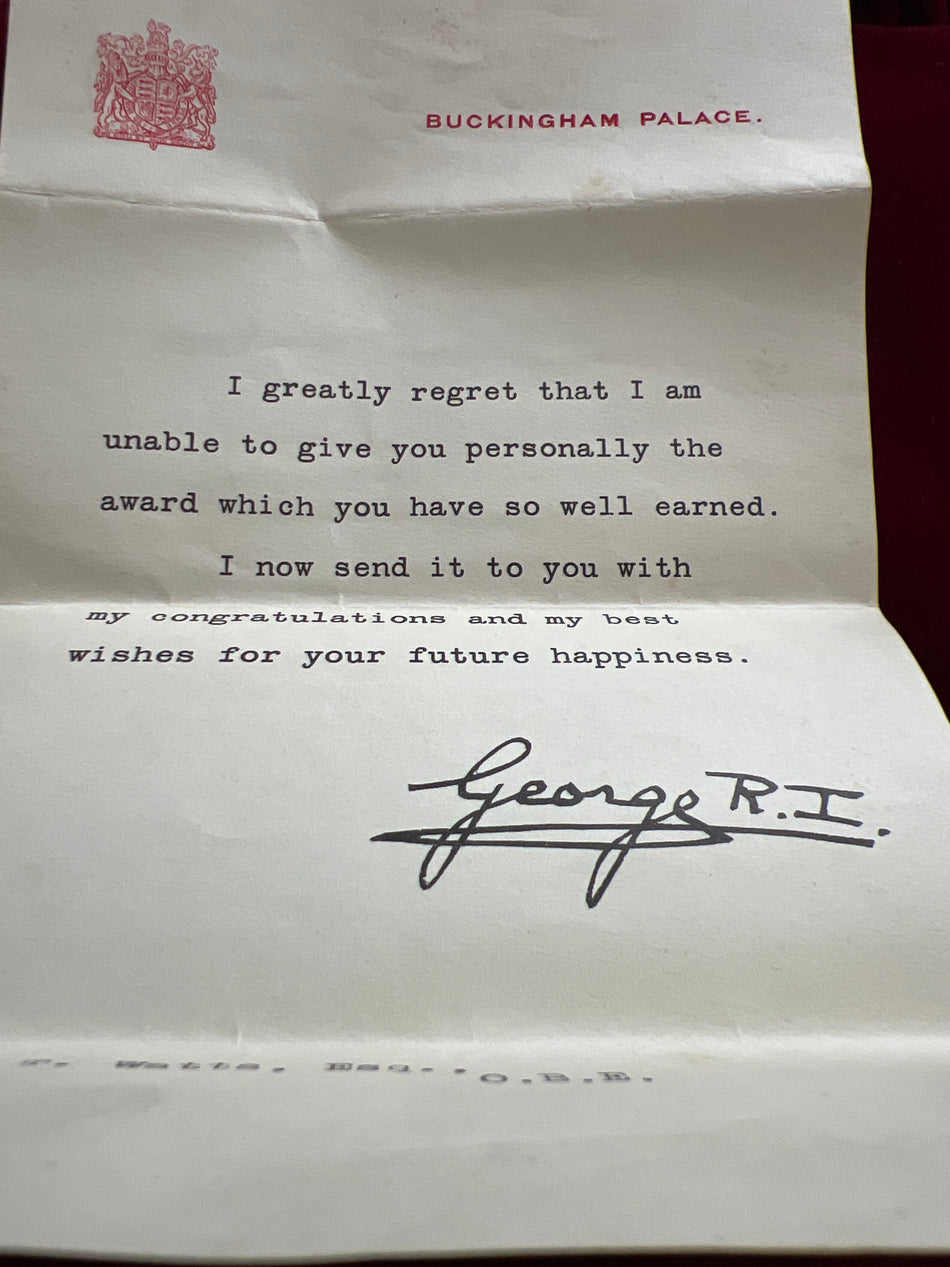 BUCKINGHAM PALACE.
I greatly regret that I am
unable to give you personally the
award which you have so well earned.
I now send it to you with
my congratulations and my best
wishes for your future happiness.
George R.I.
T. Watts, Esq., O.B.E.